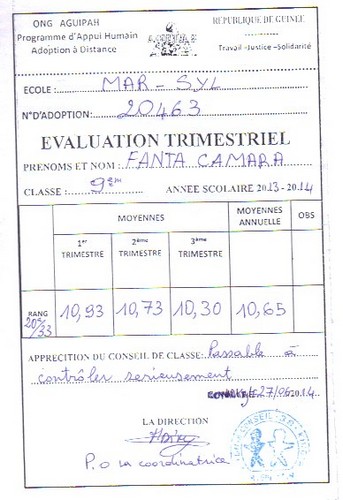 ONG AGUIPAH
Programme d'Appui Humain
Adoption à Distance
REPUBLIQUE DE GUINEE
Travail -Justice -Solidarité
ECOLE : MAR - SYL
N°D'ADOPTION: 20463
EVALUATION TRIMESTRIEL
PRENOMS ET NOM : FANTA CAMARA
CLASSE : 9ème ANNEE SCOLAIRE 2013 - 2014
MOYENNES
MOYENNES ANNUELLE
OBS
1er TRIMESTRE
2ème TRIMESTRE
3ème TRIMESTRE
RANG 20e/33 10,93 10,73 10,30 10,65
APPRECTION DU CONSEIL DE CLASSE: Passable à
contrôler serieusement
27/06 2014
LA DIRECTION
P.o la coordinatrice